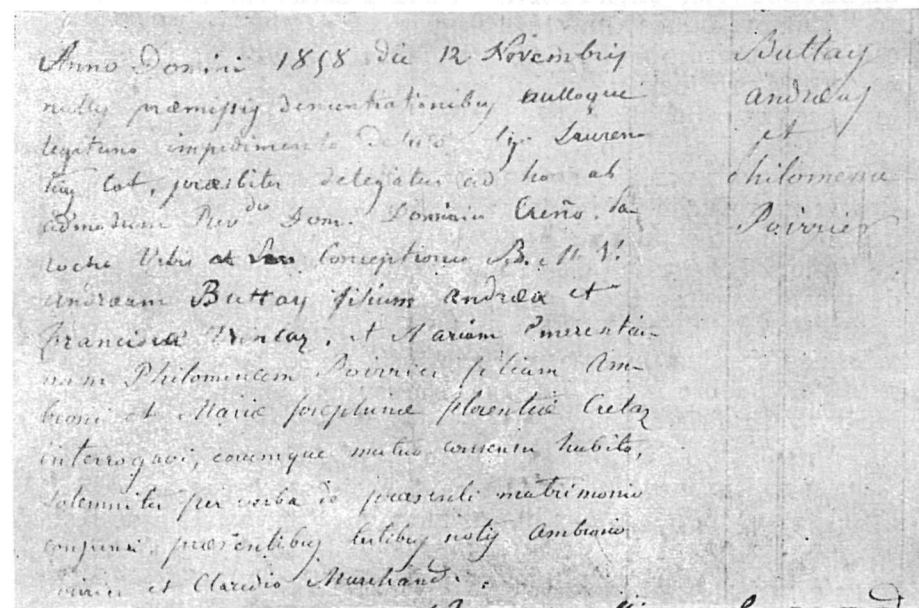 Anno Domini 1858 die 12 Novembris
nullis præmissis denuntiationibus nulloque
legitimo impedimento Lauren-
tius Cot, præsbiter delegatus ad hoc ab
admodum Revdo Dom. Dominico
Urbis Conceptionis B. M. V.
Andræam Buttay filium Andræa et
et Mariam Emerentia-
nam Philomenam Poirrier filiam Am-
et Maria Josephina Cretaz
interrogavi, eorumque mutuo consensu habito,
solemniter per verba de præsenti matrimonio
conjunxi præsentibus notis Ambrosio
et Claudio Marchand.
Buttay
Andræas
et
Philomena
Poirrier